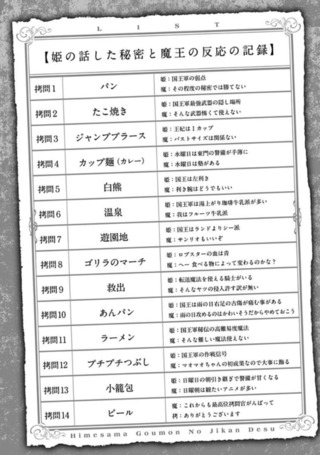 LIST
【姫の話した秘密と魔王の反応の記録】
拷問1
パン
姫：国王軍の弱点
魔：その程度の秘密では勝てない
拷問2
たこ焼き
姫：国王軍最強武器の隠し場所
魔：そんな武器怖くて使えない
拷問3
ジャンププラース
姫：王妃はIカップ
魔：バストサイズは関係ない
拷問4
カップ麺（カレー）
姫：水曜日は東門の警備が手薄に
魔：水曜日は塾がある
拷問5
白熊
姫：国王は左利き
魔：利き腕はどうでもいい
拷問6
温泉
姫：国王軍は湯上がり珈琲牛乳派が多い
魔：我はフルーツ牛乳派
拷問7
遊園地
姫：国王はランドよりシー派
魔：サンリオもいいぞ
拷問8
ゴリラのマーチ
姫：ロブスターの血は青
魔：へー 食べる物によって変わるのかな？
拷問9
救出
姫：転造魔法を使える騎士がいる
魔：そんなヤツの侵入許す訳が無い
拷問10
あんパン
姫：国王は雨の日右足の古傷が痛む事がある
魔：雨の日攻めるのはかわいそうだからやめておこう
拷問11
ラーメン
姫：国王軍秘伝の高難易度魔法
魔：そんな難しい魔法使えない
拷問12
プチプチつぶし
姫：国王軍の作戦信号
魔：マオマオちゃんの初成果なので大事に飾る
拷問13
小籠包
姫：日曜日の朝引き継ぎで警備が甘くなる
魔：日曜朝は観たいアニメが多い
拷問14
ビール
魔：これからも最高位拷問官がんばって
拷：ありがとうございます
Himesama Goumon No Jikan Desu